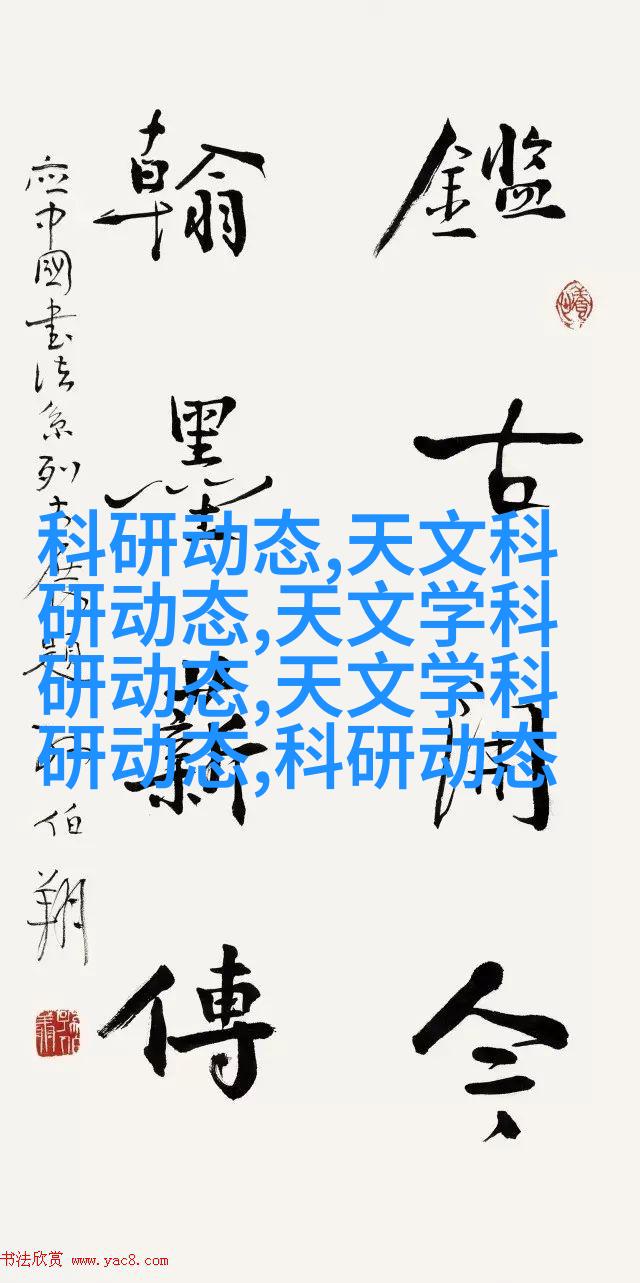 鑑古開今
翰墨薪傳
應中國書法系列
題
伯翔
科研动态,天文科
研动态,天文学科
研动态,天文学科
研动态,科研动态
书法欣赏 www.yac8.com